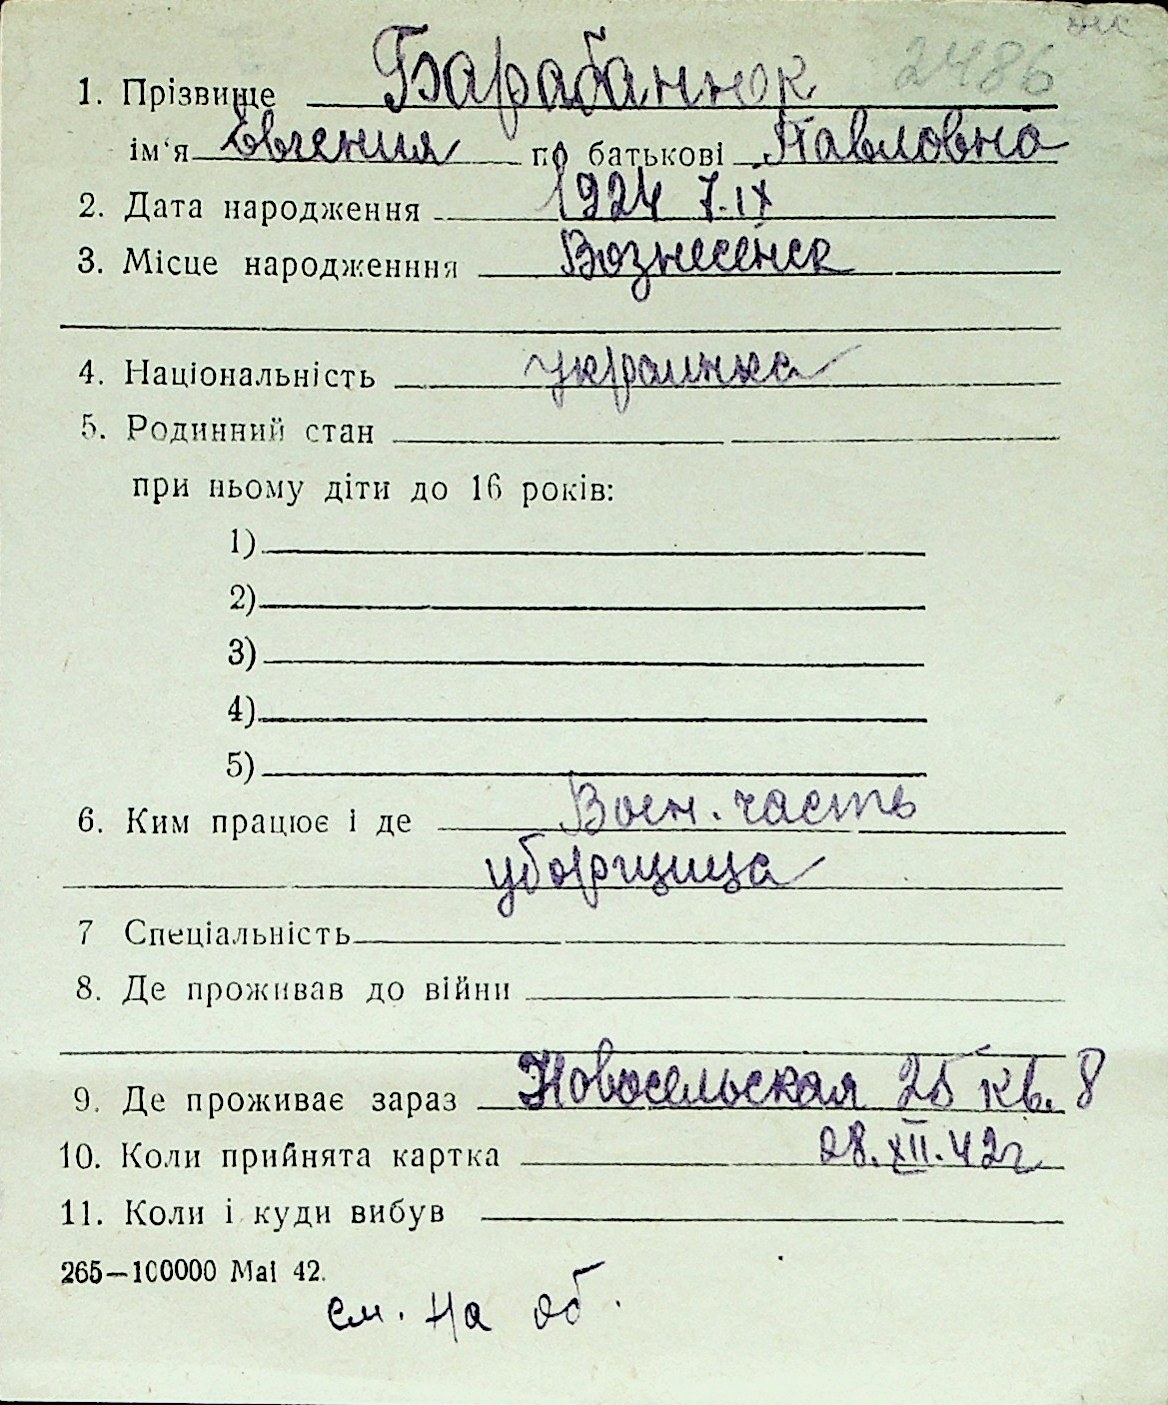 2486
1. Прізвище Барабаннюк
ім'я Евгения по батькові Павловна
2. Дата народження 1924 7.IX
3. Місце народженння Вознесенск
4. Національність украинка
5. Родинний стан
при ньому діти до 16 років:
1)
2)
3)
4)
5)
6. Ким працює і де Воен. часть
уборщица
7 Спеціальність
8. Де проживав до війни
9. Де проживає зараз Новосельская 25 кв. 8
10. Коли прийнята картка 28.XII.42г
11. Коли і куди вибув
265—100000 Mai 42.
см. На об.